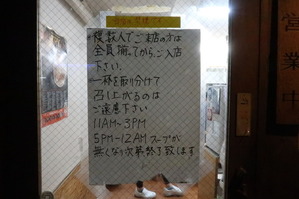 複数人でご来店の方は
全員揃ってからご入店
下さい。
一杯を取り分けて
召し上がるのは
ご遠慮下さい
11AM~3PM
5PM-12AM スープが
無くなり次第終了致します
営業中